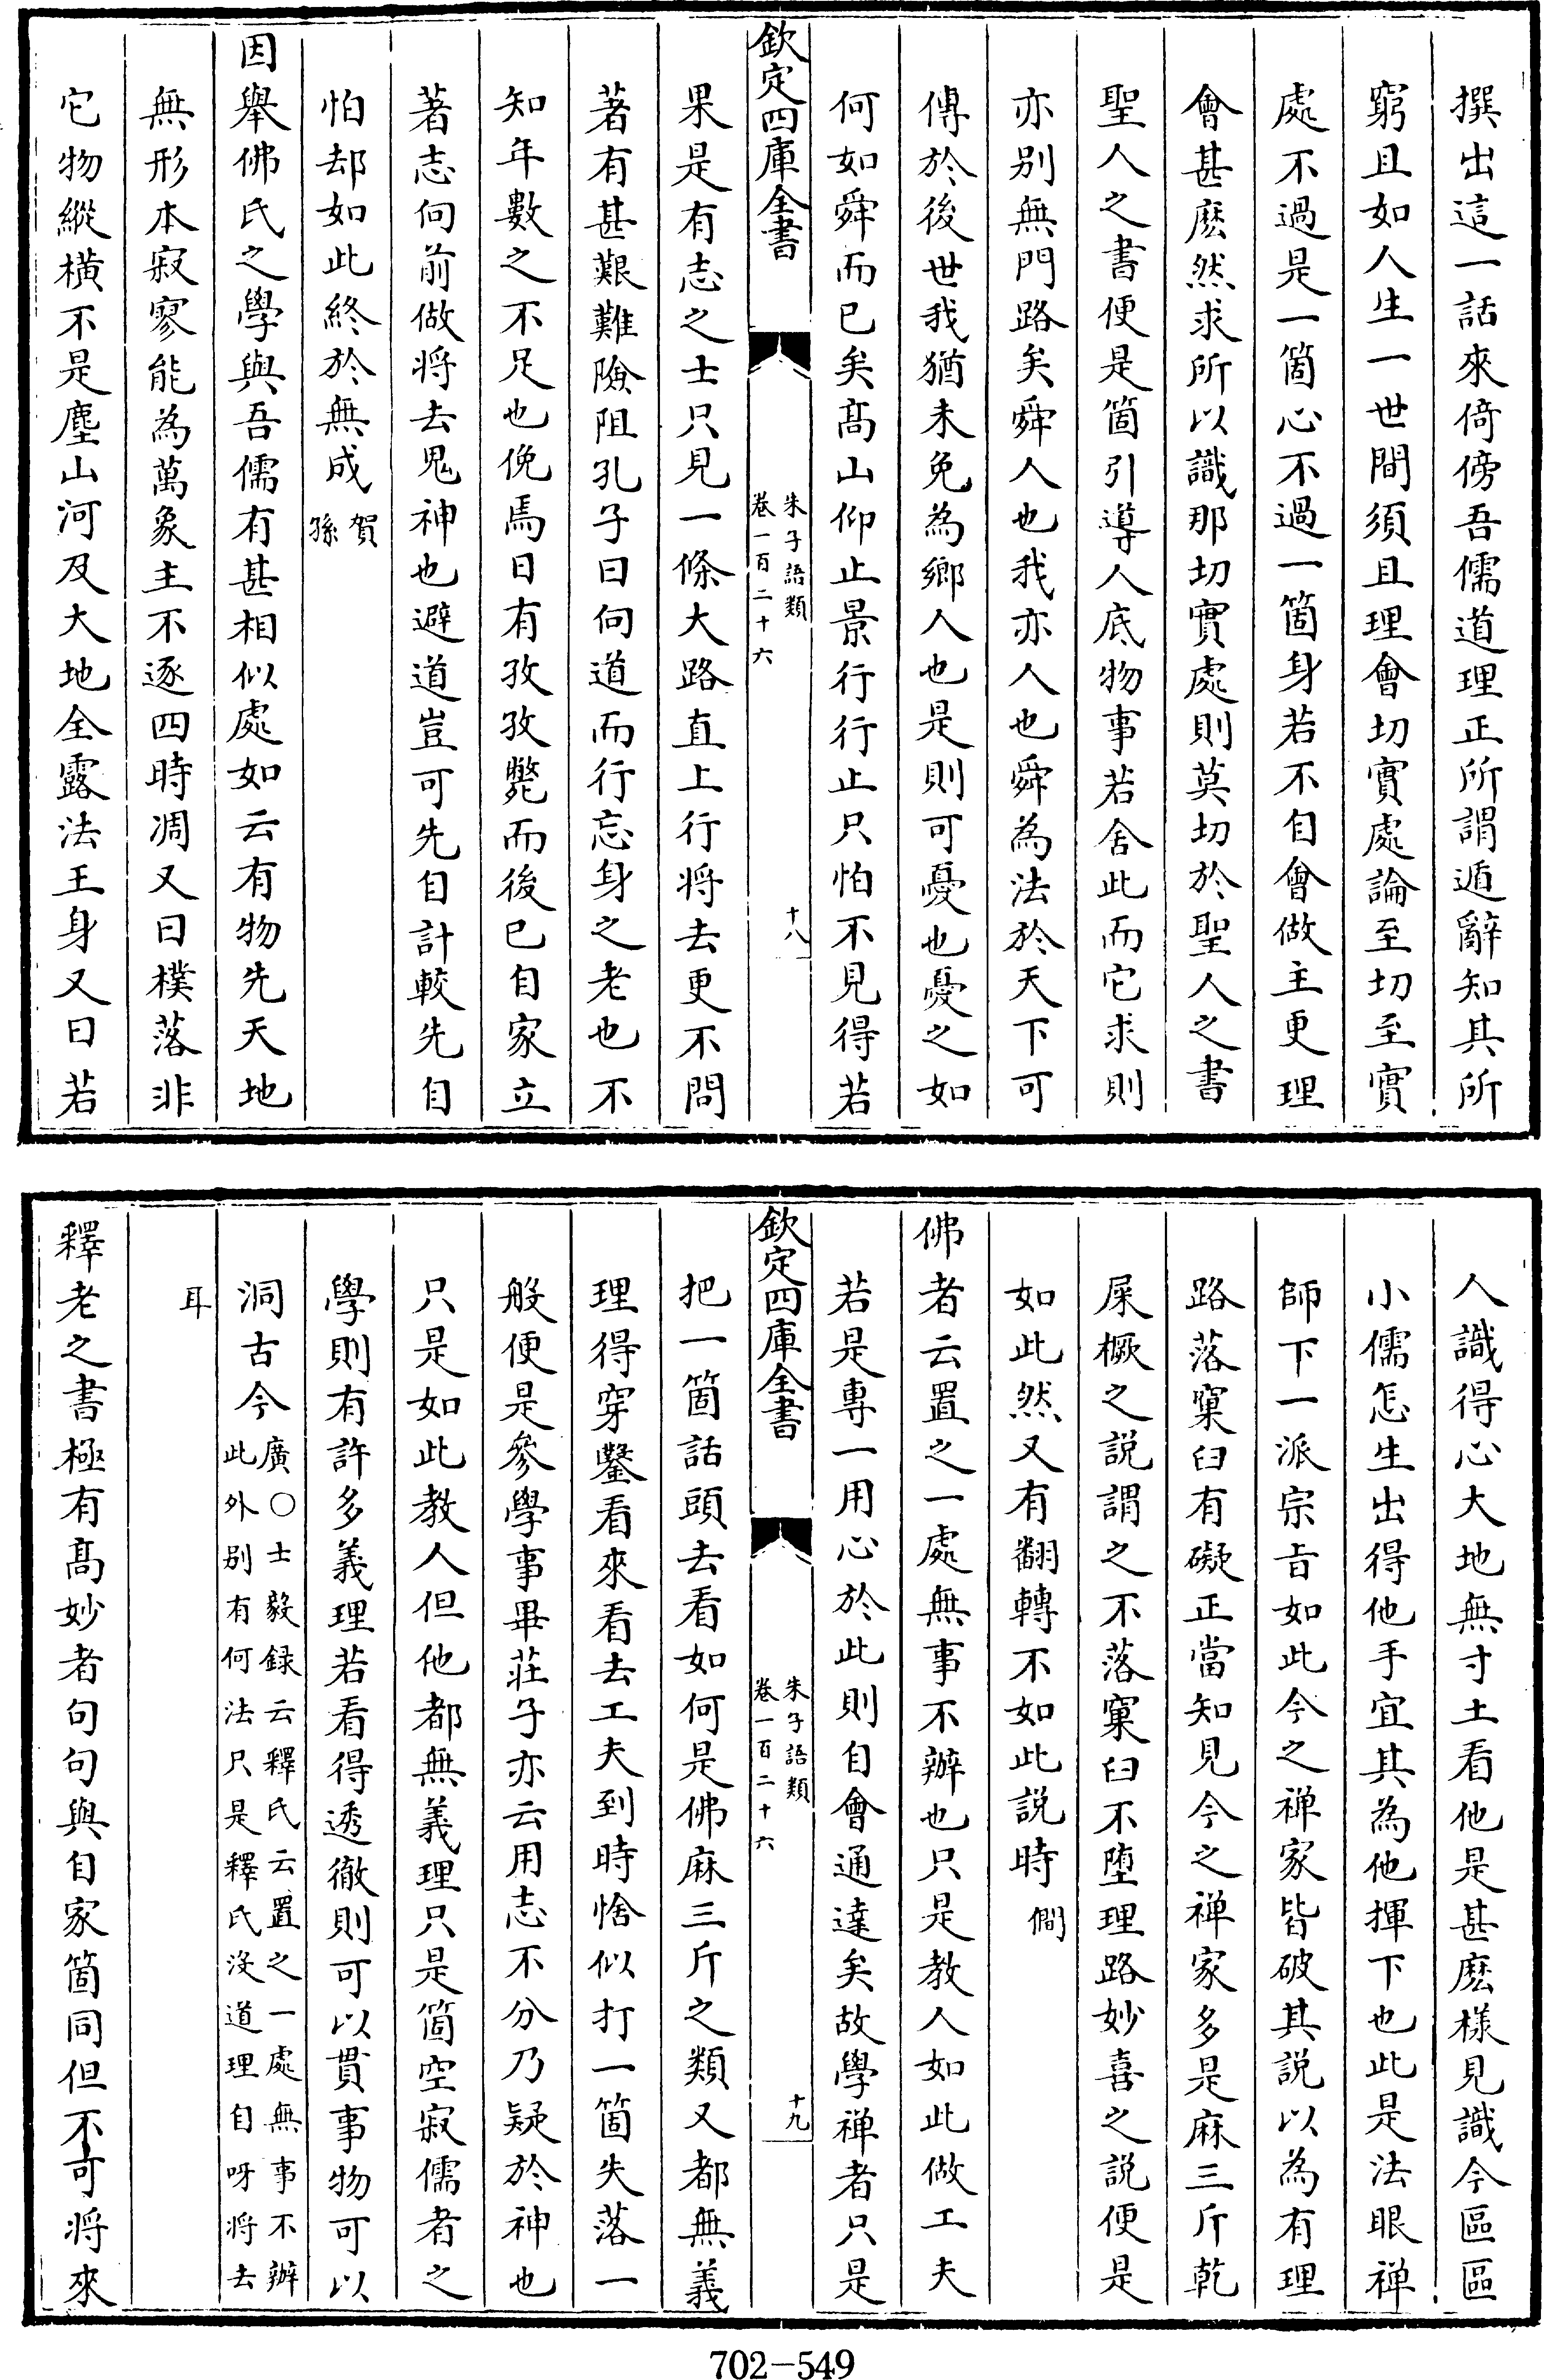 撰出這一話來倚傍吾儒道理正所謂遁辭知其所
窮且如人生一世間須且理會切實處論至切至實
處不過是一箇心不過一箇身若不自會做主更理
會甚麽然求所以識那切實處則莫切於聖人之書
聖人之書便是箇引導人底物事若舍此而它求則
亦别無門路矣舜人也我亦人也舜為法於天下可
傳於後世我猶未免為鄉人也是則可憂也憂之如
何如舜而已矣髙山仰止景行行止只怕不見得若
欽定四庫全書
朱子語類
卷一百二十六
十八
果是有志之士只見一條大路直上行將去更不問
著有甚艱難險阻孔子曰向道而行忘身之老也不
知年數之不足也俛焉日有孜孜斃而後已自家立
著志向前做將去鬼神也避道豈可先自計較先自
怕却如此終於無成賀孫
因舉佛氏之學與吾儒有甚相似處如云有物先天地
無形本寂寥能為萬象主不逐四時凋又曰樸落非
它物縱橫不是塵山河及大地全露法王身又曰若
人識得心大地無寸土看他是甚麽樣見識今區區
小儒怎生出得他手宜其為他揮下也此是法眼禅
師下一派宗旨如此今之禅家皆破其説以為有理
路落窠臼有礙正當知見今之禅家多是麻三斤乾
屎橛之説謂之不落窠臼不墮理路妙喜之説便是
如此然又有翻轉不如此説時 僩
佛者云置之一處無事不辦也只是教人如此做工夫
若是專一用心於此則自會通達矣故學禅者只是
欽定四庫全書
朱子語類
卷一百二十六
十九
把一箇話頭去看如何是佛麻三斤之類又都無義
理得穿鑿看來看去工夫到時恰似打一箇失落一
般便是參學事畢莊子亦云用志不分乃疑於神也
只是如此教人但他都無義理只是箇空寂儒者之
學則有許多義理若看得透徹則可以貫事物可以
洞古今廣○士毅録云釋氏云置之一處無事不辦
此外别有何法只是釋氏没道理自呀將去
耳
釋老之書極有髙妙者句句與自家箇同但不可將來
702-549